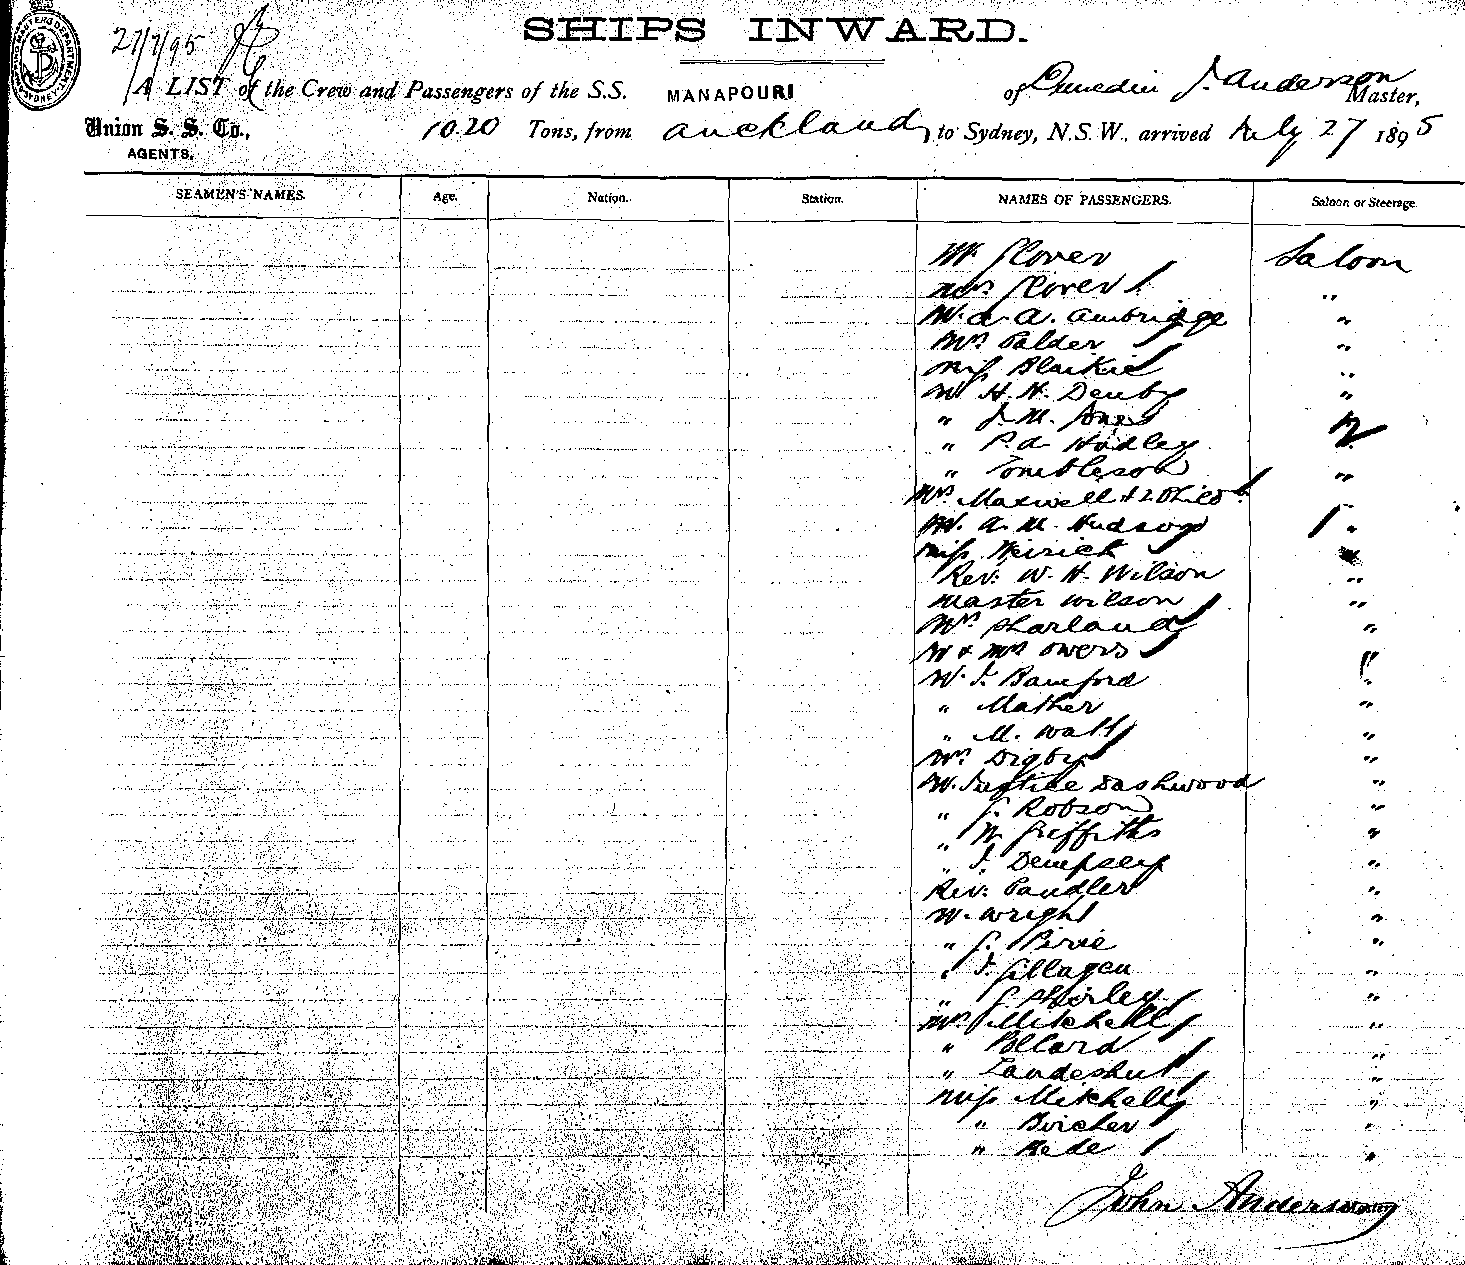 SHIPS INWARD.
27/7/95
A LIST of the Crew and Passengers of the S.S. MANAPOURI of Dunedin J. Anderson Master,
Union S. S. Co., 1020 Tons, from Auckland, to Sydney, N.S.W., arrived July 27 1895
AGENTS.
SEAMEN'S NAMES. Age. Nation. Station. NAMES OF PASSENGERS. Saloon or Steerage.
Mr Glover Saloon
Mrs Glover "
Mr. A. Ambridge "
Mrs Calder "
Miss Blaikie "
Mr H. H. Denby "
" J. M. Jones
" P. A. Hadley
" Tombleson "
Mrs Maxwell + 2 Child
Mr. A. M. Hudson "
Miss
Rev. W. H. Wilson "
Master Wilson "
Mrs Sharland "
Mr & Mrs Owers "
Mr. J. Bamford "
" Mather "
" M. Watt "
Mrs Digby "
Mr. Justice Dashwood "
" G. Robson "
" W. Griffiths "
" J. Dempsey "
Rev. "
Mr. Wright "
" G. Pirie "
" J. "
" G. Shirley "
Mrs Mitchell "
" Pollard "
" Landeshut "
Miss Mitchell "
" Bircher "
" "
John Anderson